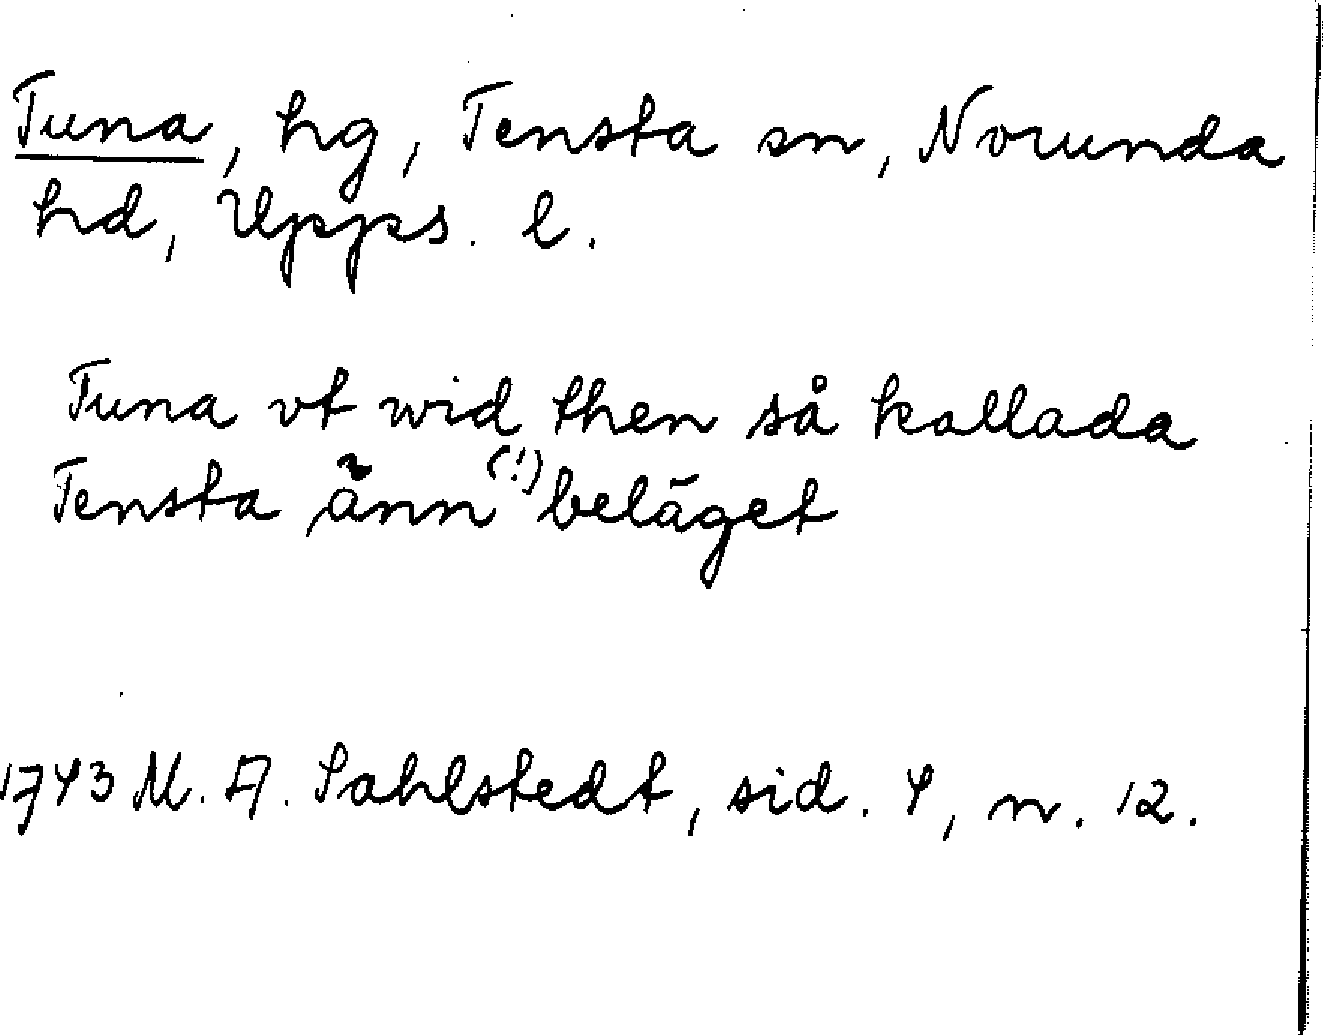 Tuna, hg, Tensta sn, Norunda
hd, Upps. l.
Tuna vt wid then så kallada
Tensta änn (!) beläget
1743 M. A. Sahlstedt, sid. 4, n. 12.